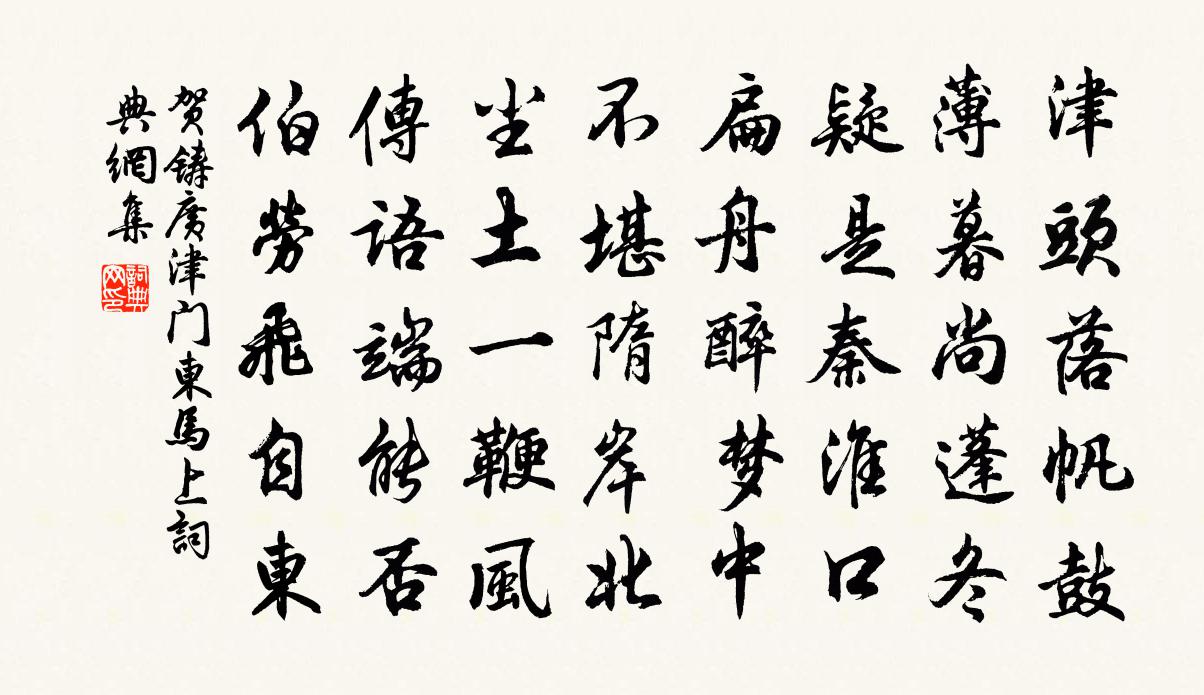 津頭落帆鼓
薄暮尚蓬冬
疑是秦淮口
扁舟醉梦中
不堪隋岸北
尘土一鞭風
傳語端能否
伯勞飛自東
贺鑄廣津門東馬上詞
典網集
詞典网印